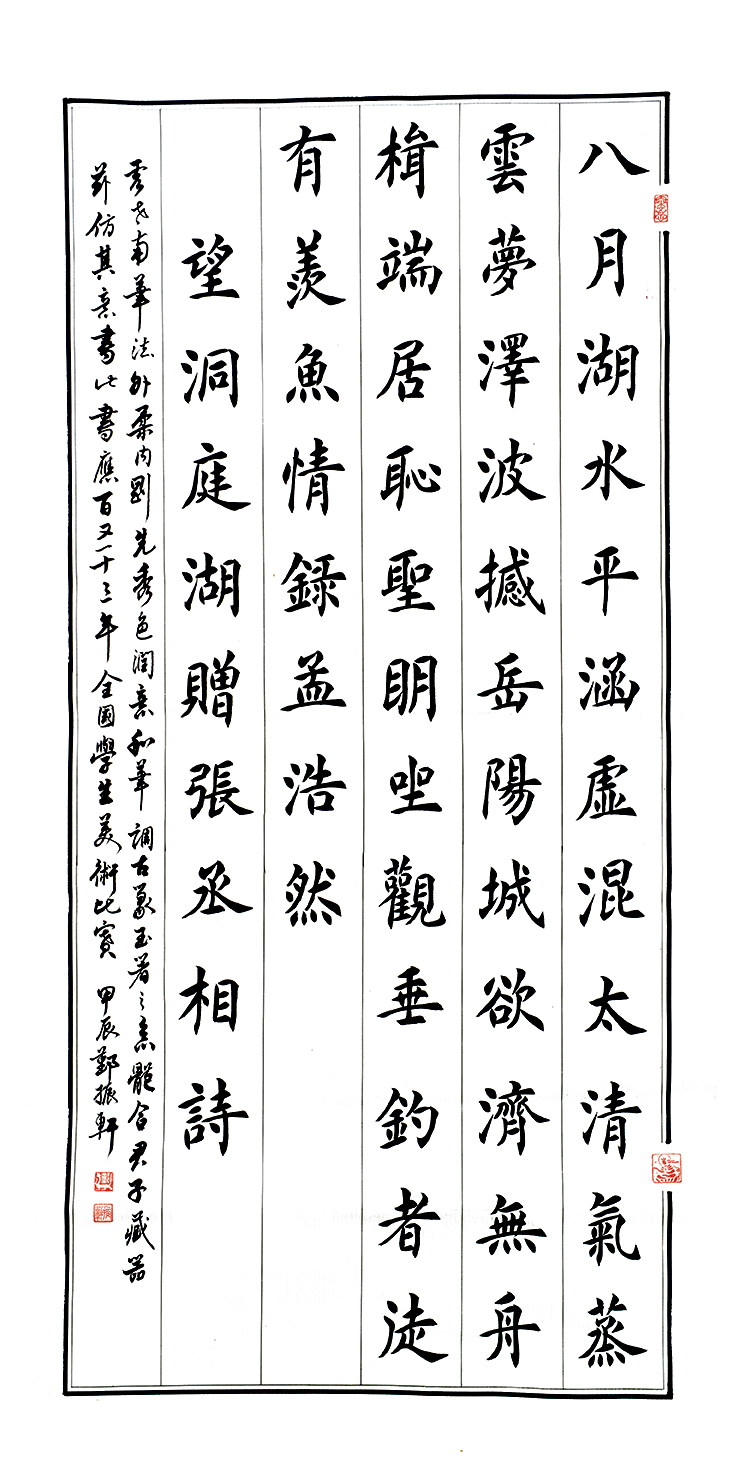 八月湖水平涵虛混太清氣蒸
雲夢澤波撼岳陽城欲濟無舟
楫端居恥聖明坐觀垂釣者徒
有羨魚情錄孟浩然
望洞庭湖贈張丞相詩
虞世南筆法外柔內剛秀色潤意和筆調古含君子藏器
仿其意書此書應百又一十三年全國學生美術比賽 甲辰鄭振軒